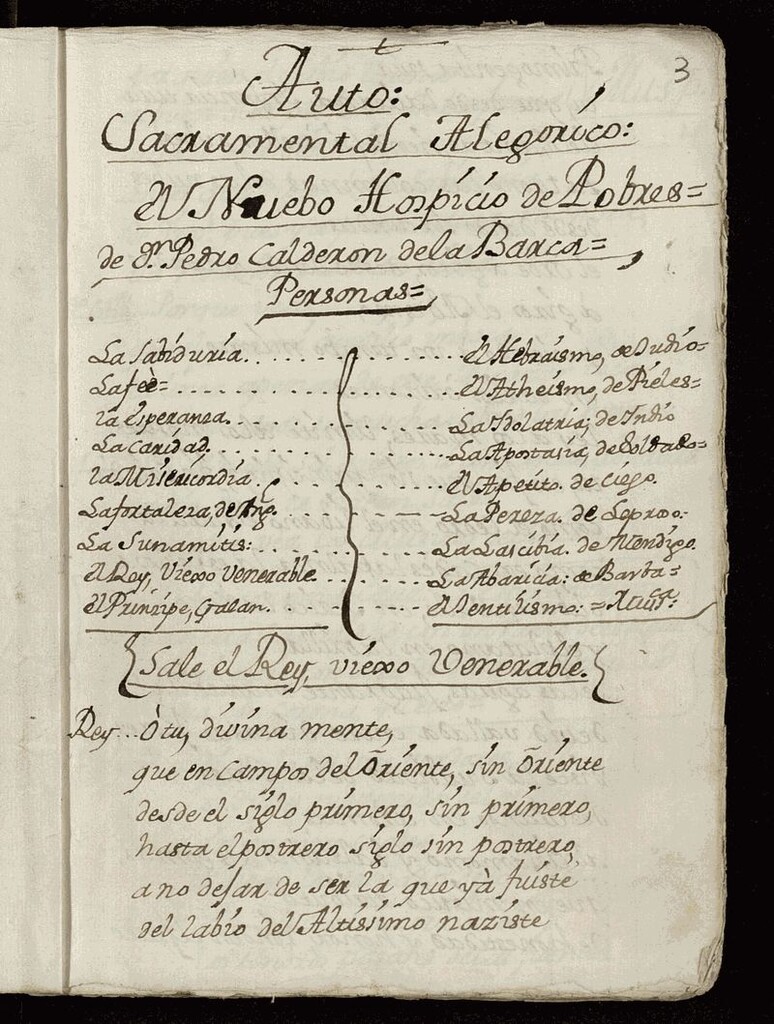 3
Auto:
Sacramental Alegorico:
el Nuebo Hospicio de Pobres=
de Dn. Pedro Calderon de la Barca=
Personas=
La Sabiduria. . . . . . . . . . . . . . . . . el Hebraismo, de Judio=
La feè= . . . . . . . . . . . . . . . . . . . el Atheismo, de Pieles=
la Esperanza. . . . . . . . . . . . . . . . La Idolatria; de Indio
La Caridad. . . . . . . . . . . . . . . . . La Apostasia, de Soldado=
la Misericordia. . . . . . . . . . . . . . el Apetito. de Ciego.
La fortaleza, de Ang. . . . . . . . . . . La Pereza. de Leproso.
La Sunamitis: . . . . . . . . . . . . . . La Lascibia. de Mendigo.
el Rey, Viexo Venerable. . . . . . . . La Abaricia: de Barba=
el Principe, Galan. . . . . . . . . . . . el Jentilismo: =
Sale el Rey, viexo Venerable.
Rey... O tu, divina mente,
que en Campos del Oriente, sin Oriente
desde el siglo primero, sin primero,
hasta el postrero siglo sin postrero,
a no dejar de ser la que yà fuiste
del labio del Altissimo naziste